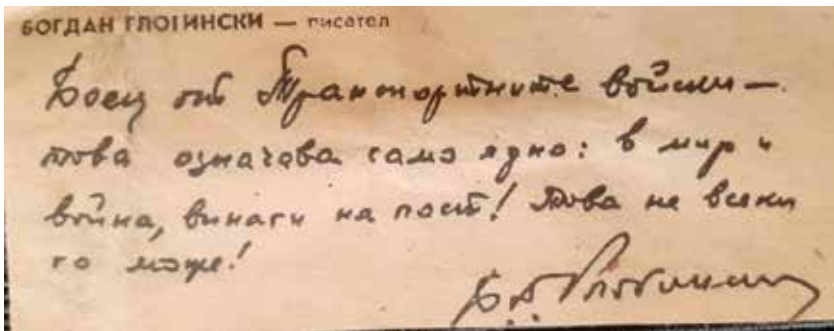 БОГДАН ГЛОГИНСКИ — писател
Боец от Транспортните войски —
това означава само едно: в мир и
война, винаги на пост! Това не всеки
го може!
Б. Глогински